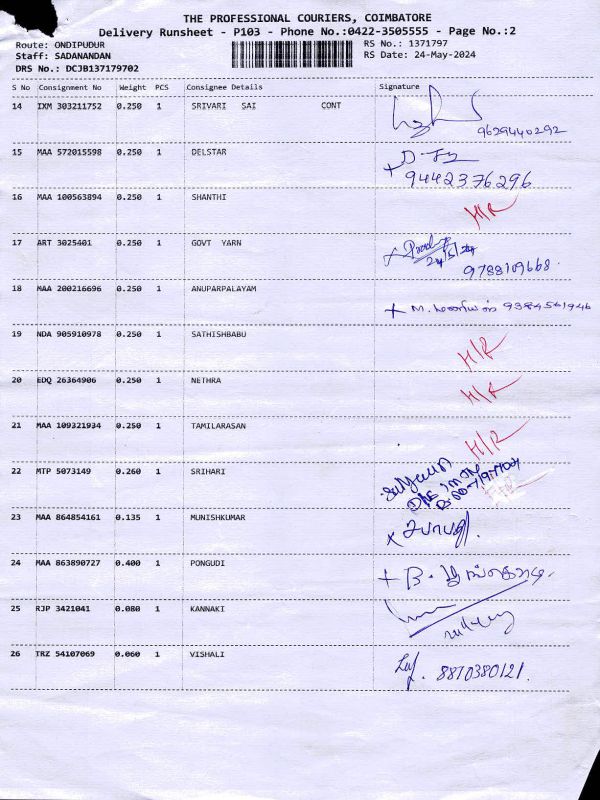 THE PROFESSIONAL COURIERS, COIMBATORE
Delivery Runsheet - P103 - Phone No.:0422-3505555 - Page No.:2
Route: ONDIPUDUR RS No.: 1371797
Staff: SADANANDAN RS Date: 24-May-2024
DRS No.: DCJB137179702
S No Consignment No Weight PCS Consignee Details Signature
14 IXM 303211752 0.250 1 SRIVARI SAI CONT
9629440292
15 MAA 572015598 0.250 1 DELSTAR
9442376296
16 MAA 100563894 0.250 1 SHANTHI H/R
17 ART 3025401 0.250 1 GOVT YARN
24/5/24
9788109668
18 MAA 200216696 0.250 1 ANUPARPALAYAM
M. 9384561946
19 NDA 905910978 0.250 1 SATHISHBABU H/R
20 EDQ 26364906 0.250 1 NETHRA H/R
21 MAA 109321934 0.250 1 TAMILARASAN H/R
22 MTP 5073149 0.260 1 SRIHARI
23 MAA 864854161 0.135 1 MUNISHKUMAR
24 MAA 863890727 0.400 1 PONGUDI
B.
25 RJP 3421041 0.080 1 KANNAKI
26 TRZ 54107069 0.060 1 VISHALI
8870380121.